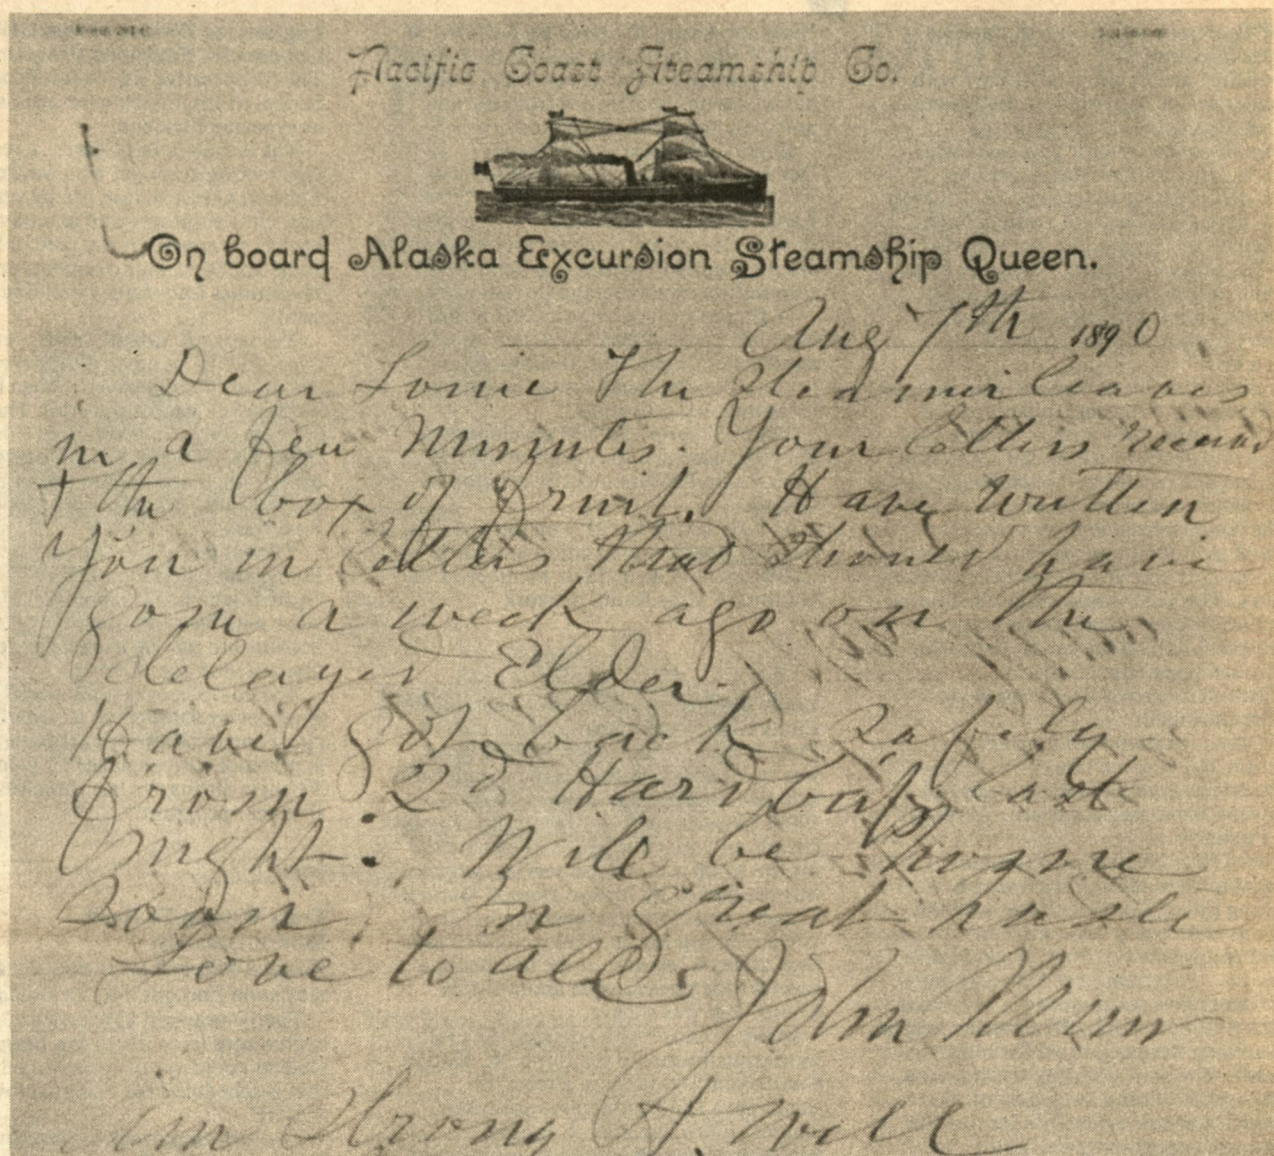 Pacific Coast Steamship Co.
On board Alaska Excursion Steamship Queen.
Aug 7th 1890
Dear Louie The steamer leaves
in a few minutes. Your letters received
+ the box of fruit. Have written
you in letters that should have
gone a week ago on the
delayed Elder.
Have got back safely
from 2d Hard last
night. Will be home
soon. In great haste
Love to all. John Muir
im strong & well